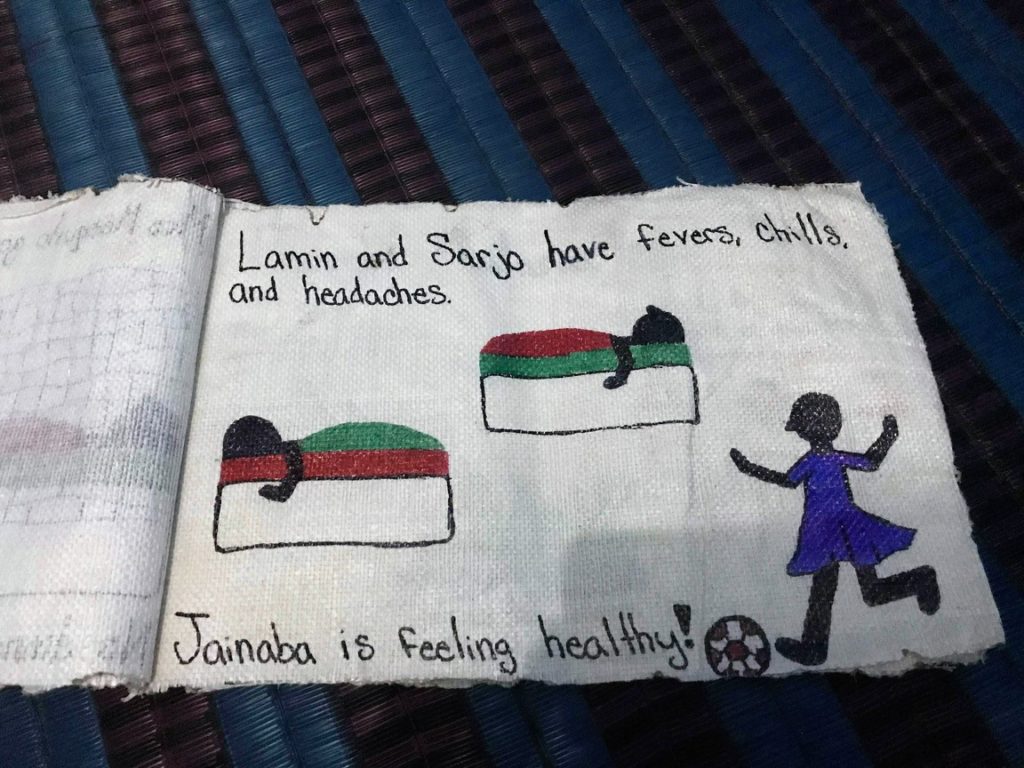 Lamin and Sarjo have fevers, chills,
and headaches.
Jainaba is feeling healthy!